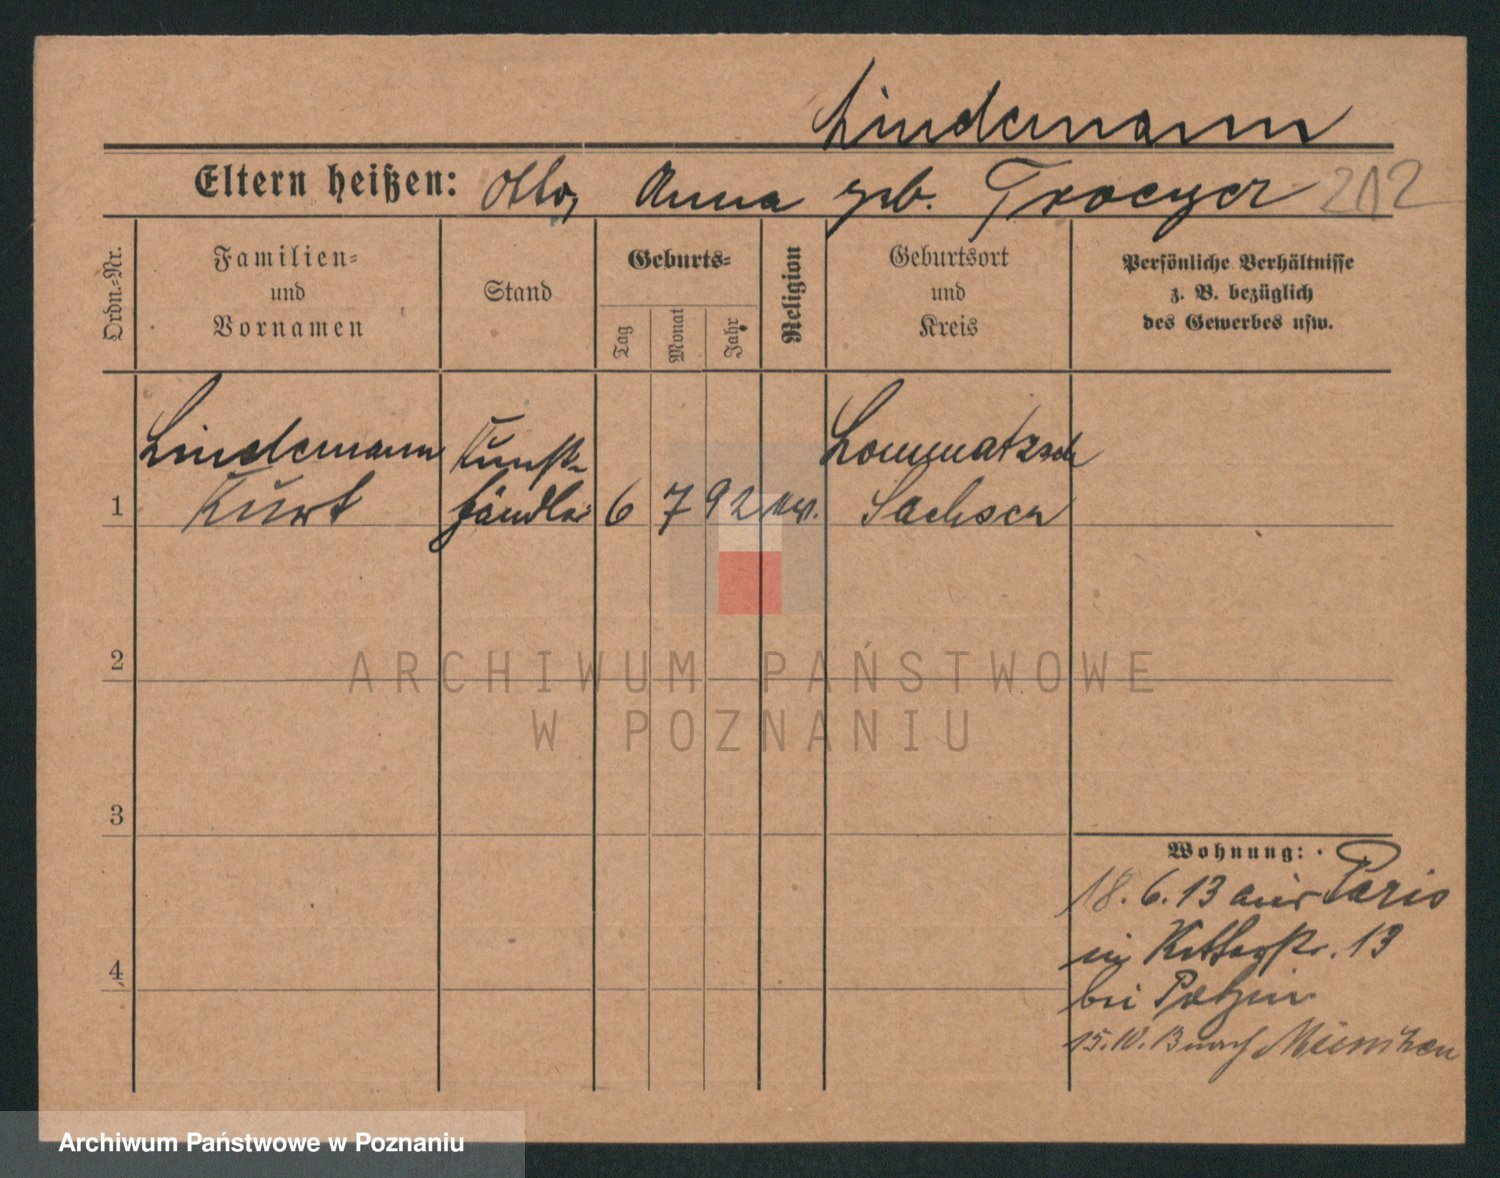 Lindemann
Eltern heißen: Otto, Anna geb. Troeger 212
Ordn.-Nr.
Familien-
und
Vornamen
Stand
Geburts-
Tag
Monat
Jahr
Religion
Geburtsort
und
Kreis
Persönliche Verhältnisse
z. B. bezüglich
des Gewerbes usw.
Lindemann Kunst- Lommatzsch
1 Kurt händler 6 7 92 ev. Sachsen
2
ARCHIWUM PAŃSTWOWE
W POZNANIU
3
4
Wohnung:
18. 6. 13 aus Paris
in Ritterstr. 13
bei
15. 10. 13 nach München
Archiwum Państwowe w Poznaniu